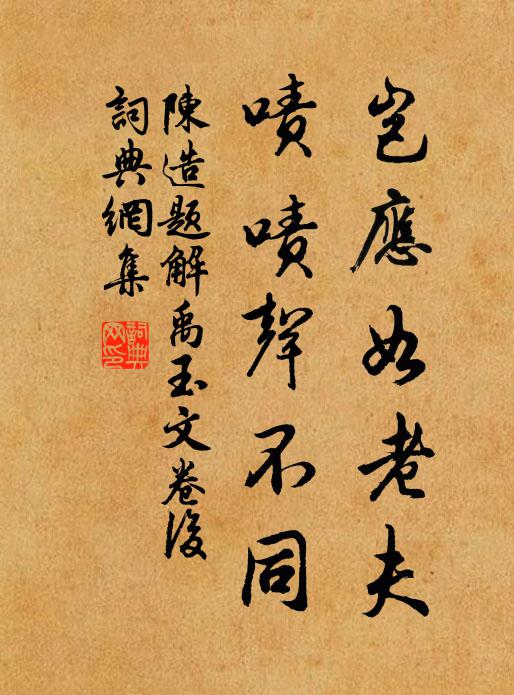 豈應如老夫
嘖嘖聲不同
陳造題解禹玉文卷後
詞典網集
詞典
网印